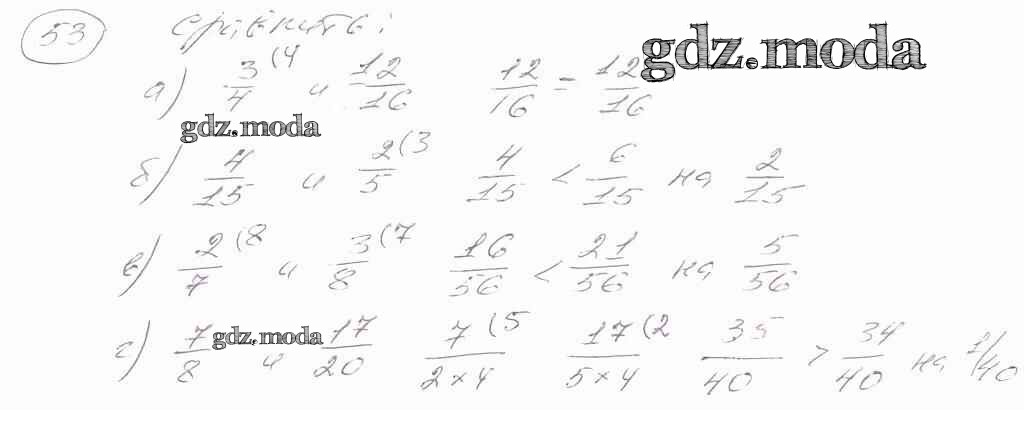 53 сравнить:
gdz.moda
а) 3/4 (4 и 12/16 12/16 = 12/16
gdz.moda
б) 4/15 и 2/5 (3 4/15 < 6/15 на 2/15
в) 2/7 (8 и 3/8 (7 16/56 < 21/56 на 5/56
г) 7/8 и 17/20 7/2×4 (5 17/5×4 (2 35/40 > 34/40 на 1/40
gdz.moda